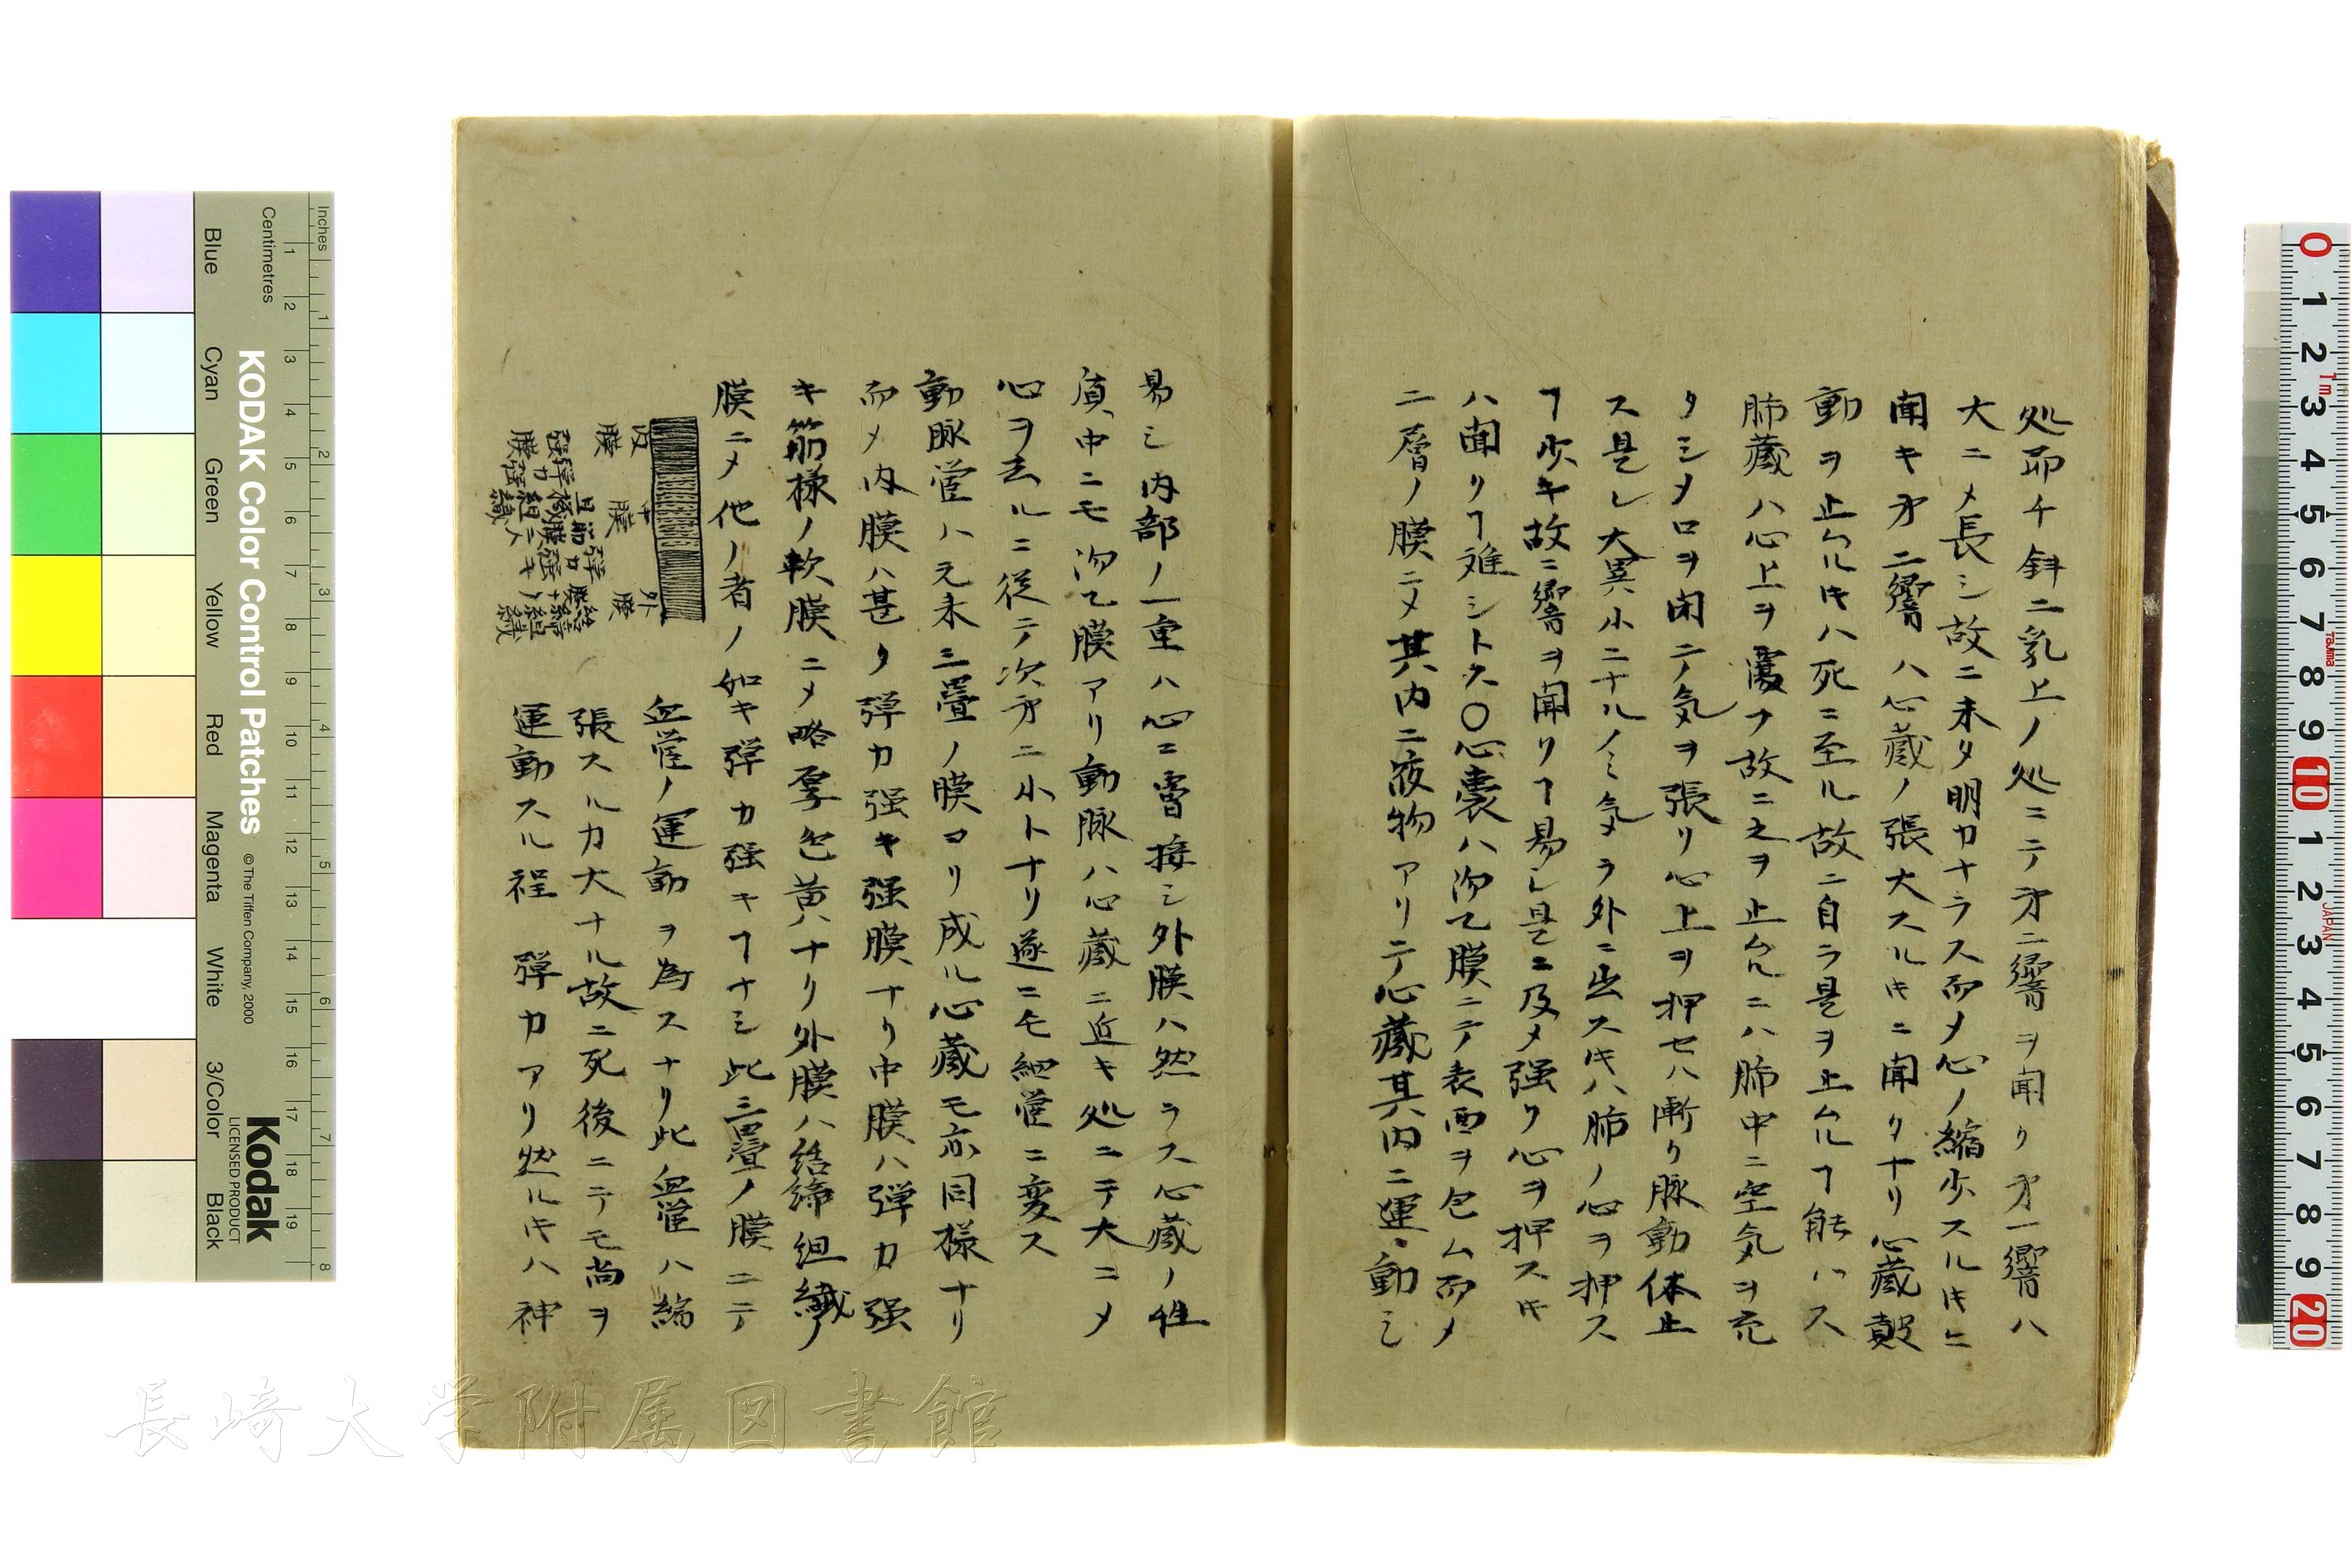 処卽チ斜ニ乳上ノ処ニテ㐧二響ヲ聞ク㐧一響ハ
大ニメ長シ故ニ未タ明カナラス而メ心ノ縮少スルキニ
聞キ㐧二響ハ心蔵ノ張大スルキニ聞クナリ心蔵鼓
動ヲ止ムルキハ死ニ至ル故ニ自ラ是ヲ止ムルヿ能ハス
肺蔵ハ心上ヲ覆フ故ニ之ヲ止ムルニハ肺中ニ空気ヲ充
タシメ口ヲ閉テ気ヲ張リ心上ヲ押セハ漸ク脉動休止
ス是レ大異小ニナルノミ気メラ外ニ出スキハ肺ノ心ヲ押ス
ヿ少キ故ニ響ヲ聞クヿ易シ是ニ及メ強ク心ヲ押スキ
ハ聞クヿ難シトス〇心嚢ハ沕乙膜ニテ表面ヲ包ム而メ
二層ノ膜ニメ其内ニ液物アリテ心蔵其内ニ運動シ
易シ内部ノ一重ハ心ニ密接シ外膜ハ然ラス心蔵ノ性
質中ニモ沕乙膜アリ動脉ハ心蔵ニ近キ処ニテ大ニメ
心ヲ去ルニ従テ次㐧ニ小トナリ遂ニモ細管ニ変ス
動脉管ハ元来三疊ノ膜ヨリ成ル心蔵モ亦同様ナリ
而メ内膜ハ甚タ弾力強キ強膜ナリ中膜ハ弾力強
キ筋様ノ軟膜ニメ略厚色黄ナリ外膜ハ結締組織ノ
膜ニメ他ノ者ノ如キ弾力強キヿナシ此三疊ノ膜ニテ
血管ノ運動ヲ為スナリ此血管ハ縮
張スル力大ナル故ニ死後ニテモ尚ヲ
運動スル程 弾力アリ然ルキハ神
内膜
弾力
強膜
中膜
弾力
強キ
筋
外膜
結締
組織
Inches
Centimetres
1 2 3 4 5 6 7 8
1 2 3 4 5 6 7 8 9 10 11 12 13 14 15 16 17 18 19
KODAK Color Control Patches
© The Tiffen Company, 2000
Kodak
LICENSED PRODUCT
Blue
Cyan
Green
Yellow
Red
Magenta
White
3/Color
Black
0 1 2 3 4 5 6 7 8 9 10 1 2 3 4 5 6 7 8 9 20
1m
Tajima
JAPAN
長崎大学附属図書館